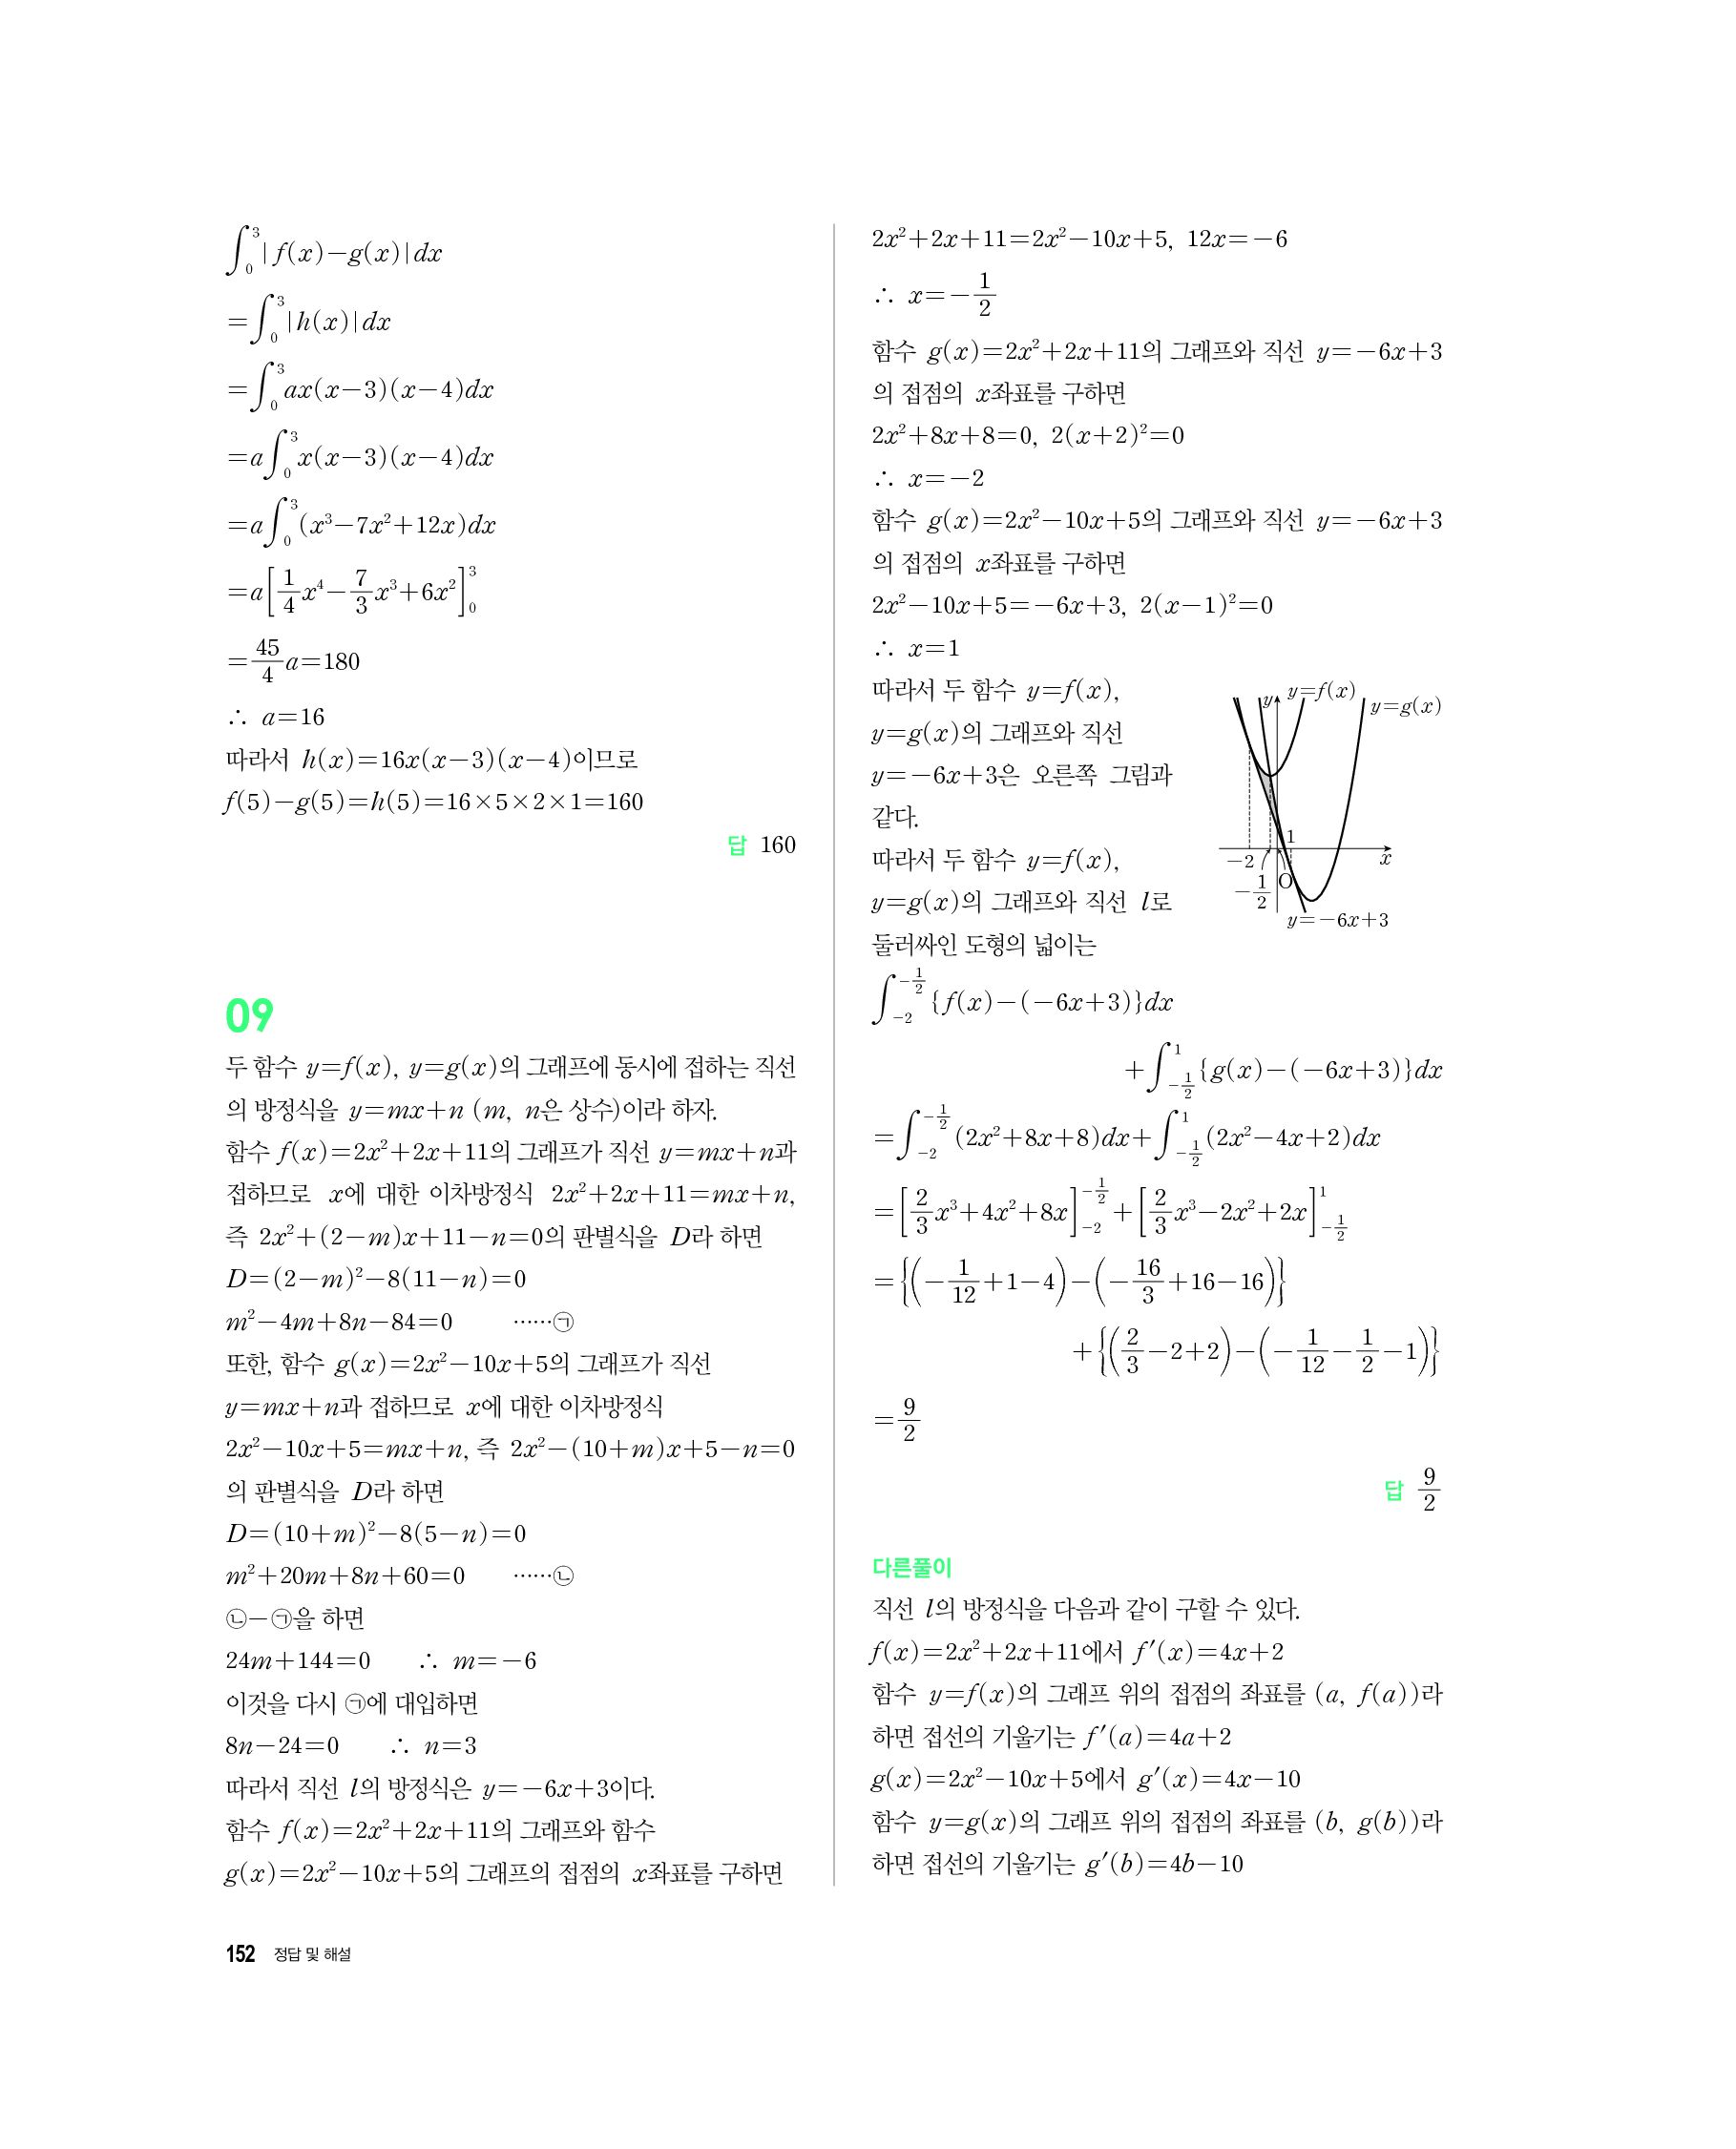 ∫₀³|f(x)−g(x)|dx
=∫₀³|h(x)|dx
=∫₀³ax(x−3)(x−4)dx
=a∫₀³x(x−3)(x−4)dx
=a∫₀³(x³−7x²+12x)dx
=a[1/4x⁴−7/3x³+6x²]₀³
=45/4a=180
∴ a=16
따라서 h(x)=16x(x−3)(x−4)이므로
f(5)−g(5)=h(5)=16×5×2×1=160
답 160
09
두 함수 y=f(x), y=g(x)의 그래프에 동시에 접하는 직선
의 방정식을 y=mx+n (m, n은 상수)이라 하자.
함수 f(x)=2x²+2x+11의 그래프가 직선 y=mx+n과
접하므로 x에 대한 이차방정식 2x²+2x+11=mx+n,
즉 2x²+(2−m)x+11−n=0의 판별식을 D라 하면
D=(2−m)²−8(11−n)=0
m²−4m+8n−84=0 ……㉠
또한, 함수 g(x)=2x²−10x+5의 그래프가 직선
y=mx+n과 접하므로 x에 대한 이차방정식
2x²−10x+5=mx+n, 즉 2x²−(10+m)x+5−n=0
의 판별식을 D라 하면
D=(10+m)²−8(5−n)=0
m²+20m+8n+60=0 ……㉡
㉡−㉠을 하면
24m+144=0 ∴ m=−6
이것을 다시 ㉠에 대입하면
8n−24=0 ∴ n=3
따라서 직선 l의 방정식은 y=−6x+3이다.
함수 f(x)=2x²+2x+11의 그래프와 함수
g(x)=2x²−10x+5의 그래프의 접점의 x좌표를 구하면
2x²+2x+11=2x²−10x+5, 12x=−6
∴ x=−1/2
함수 g(x)=2x²+2x+11의 그래프와 직선 y=−6x+3
의 접점의 x좌표를 구하면
2x²+8x+8=0, 2(x+2)²=0
∴ x=−2
함수 g(x)=2x²−10x+5의 그래프와 직선 y=−6x+3
의 접점의 x좌표를 구하면
2x²−10x+5=−6x+3, 2(x−1)²=0
∴ x=1
따라서 두 함수 y=f(x),
y=g(x)의 그래프와 직선
y=−6x+3은 오른쪽 그림과
같다.
따라서 두 함수 y=f(x),
y=g(x)의 그래프와 직선 l로
둘러싸인 도형의 넓이는
y y=f(x)
y=g(x)
1
−2 x
−1/2 O
y=−6x+3
∫₋₂^(−1/2){f(x)−(−6x+3)}dx
+∫₋₁/₂^1{g(x)−(−6x+3)}dx
=∫₋₂^(−1/2)(2x²+8x+8)dx+∫₋₁/₂^1(2x²−4x+2)dx
=[2/3x³+4x²+8x]₋₂^(−1/2)+[2/3x³−2x²+2x]₋₁/₂^1
={(−1/12+1−4)−(−16/3+16−16)}
+{(2/3−2+2)−(−1/12−1/2−1)}
=9/2
답 9/2
다른풀이
직선 l의 방정식을 다음과 같이 구할 수 있다.
f(x)=2x²+2x+11에서 f′(x)=4x+2
함수 y=f(x)의 그래프 위의 접점의 좌표를 (a, f(a))라
하면 접선의 기울기는 f′(a)=4a+2
g(x)=2x²−10x+5에서 g′(x)=4x−10
함수 y=g(x)의 그래프 위의 접점의 좌표를 (b, g(b))라
하면 접선의 기울기는 g′(b)=4b−10
152 정답 및 해설